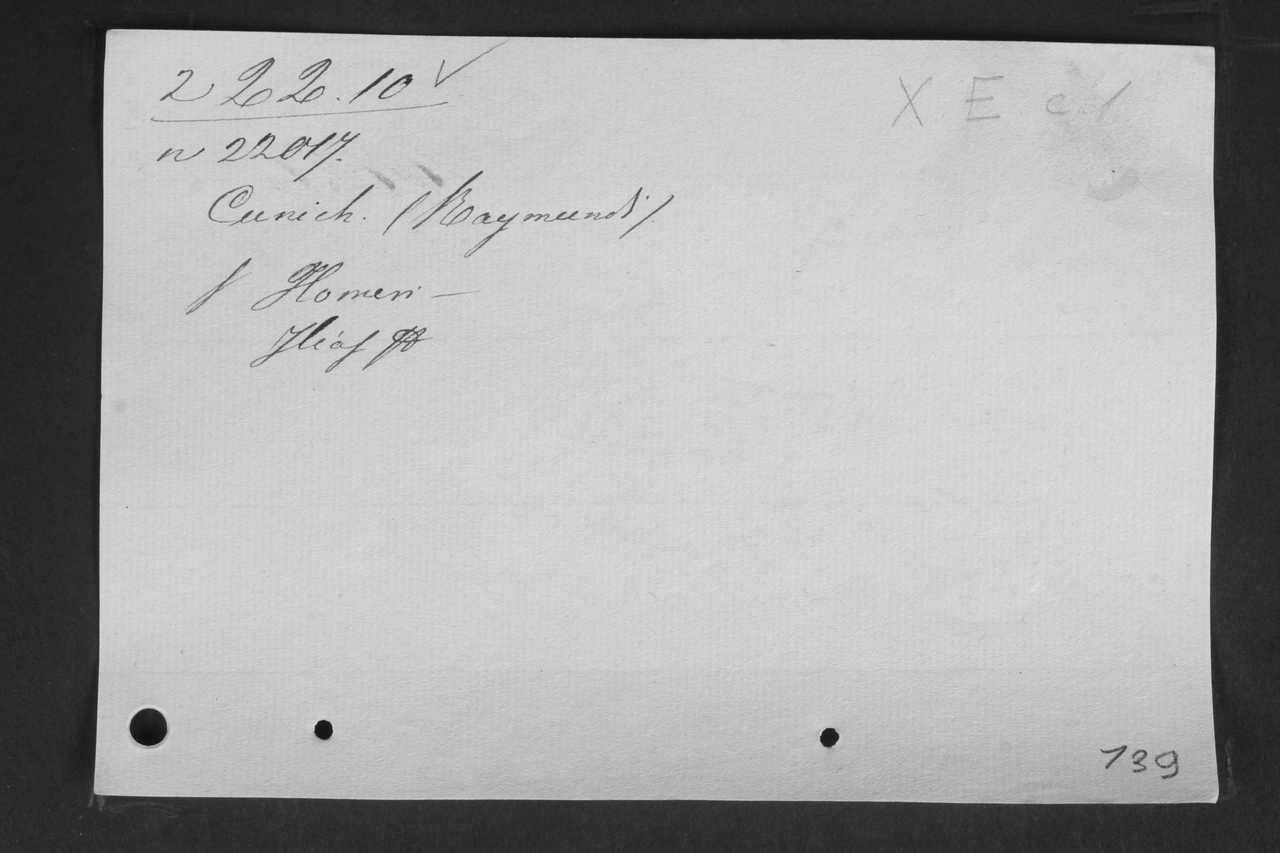 2 22.10 √
X E c 1
n 22017.
Cunich. (Raymundi).
f Homeri –
Ilias
139